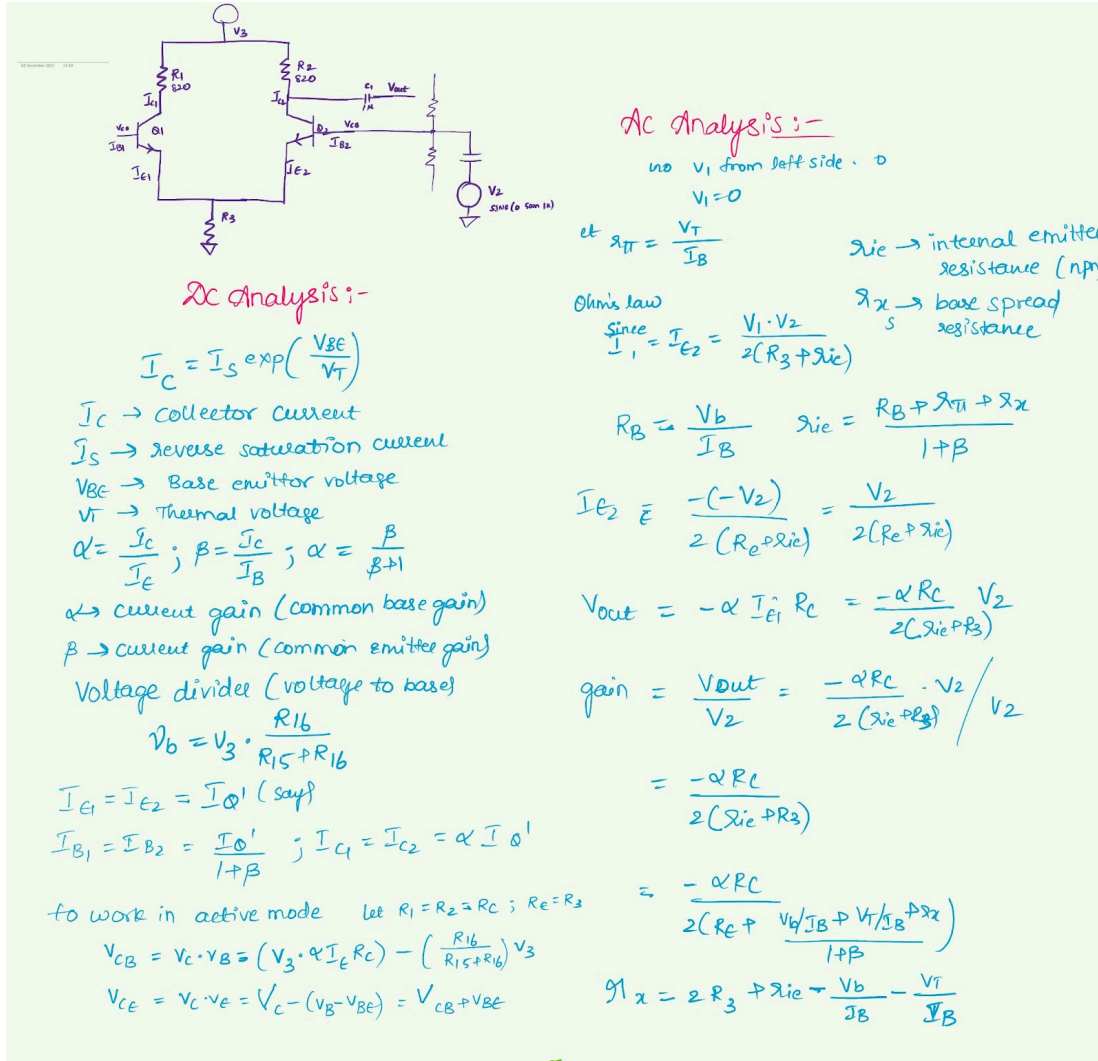 V3
R1
820
R2
820
C1
1µ
Vout
IC1
IC2
VCB
Q1
IB1
VCB
IB2
IE1
IE2
V2
SINE(0 50m 1k)
R3
DC Analysis :-
I_C = I_S exp(V_BE/V_T)
I_C → collector current
I_S → reverse saturation current
V_BE → Base emittor voltage
V_T → Thermal voltage
α = I_C/I_E ; β = I_C/I_B ; α = β/β+1
α → current gain (common base gain)
β → current gain (common emitter gain)
Voltage divider (voltage to base)
V_b = V_3 · R16/R15+R16
I_E1 = I_E2 = I_Q' (say)
I_B1 = I_B2 = I_Q'/1+β ; I_C1 = I_C2 = α I_Q'
to work in active mode Let R1 = R2 = RC ; RE = R3
V_CB = V_C · V_B = (V_3 · α I_E R_C) - (R16/R15+R16) V_3
V_CE = V_C · V_E = V_C - (V_B - V_BE) = V_CB + V_BE
AC Analysis :-
no V1 from left side . 0
V1 = 0
et r_π = V_T/I_B
rie → internal emitter
resistance (npn
r_x s → base spread
resistance
Ohm's law
Since
I_1 = I_E2 = V1 · V2/2(R3 + rie)
R_B = Vb/I_B rie = R_B + r_π + r_x/1+β
I_E2 = -(-V2)/2(Re + rie) = V2/2(Re + rie)
Vout = -α I_E1 R_C = -αR_C/2(rie + R3) V2
gain = Vout/V2 = -αR_C/2(rie + R3) · V2 / V2
= -αR_C/2(rie + R3)
= -αR_C/2(R_E + Vb/I_B + V_T/I_B + r_x/1+β)
r_x = 2R_3 + rie - Vb/I_B - V_T/I_B